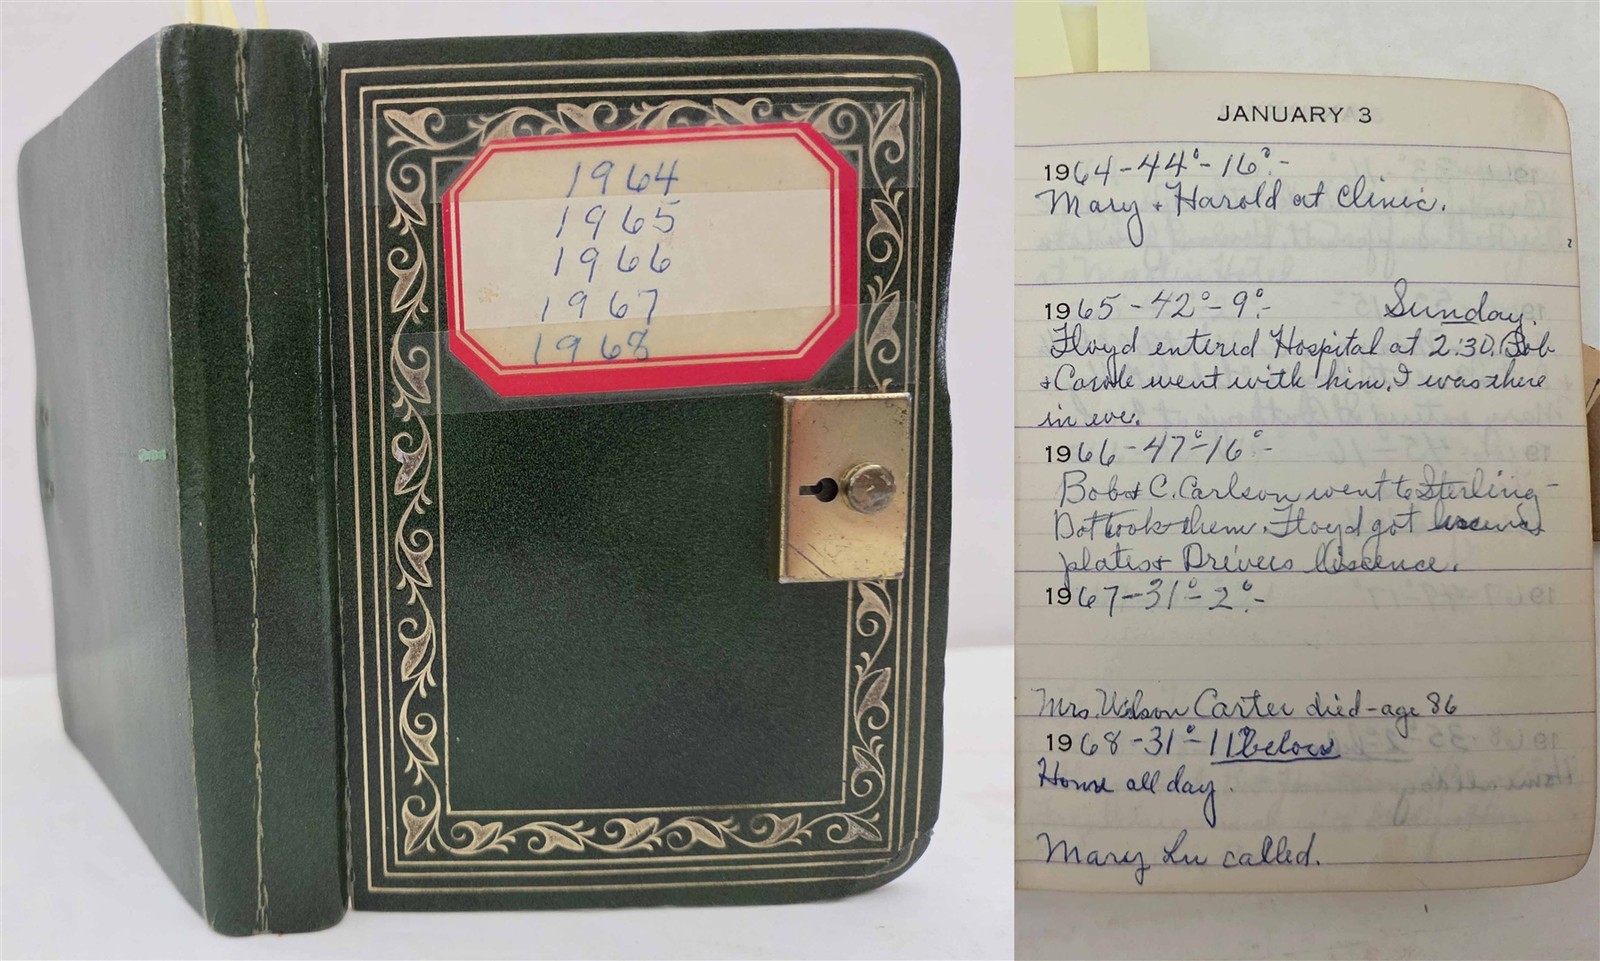 1964
1965
1966
1967
1968
JANUARY 3
1964-44°-16°-
Mary + Harold at Clinic.
1965-42°-9°- Sunday.
Floyd entered Hospital at 2:30. Bob
+ Carole went with him. I was there
in eve.
1966-47°-16°-
Bob & C. Carlson went to Sterling-
Dot took them. Floyd got
plates + Drivers liscence.
1967-31°-2°-
Mrs. Wilson Carter died-age 86
1968-31°-11° below
Home all day.
Mary Lu called.